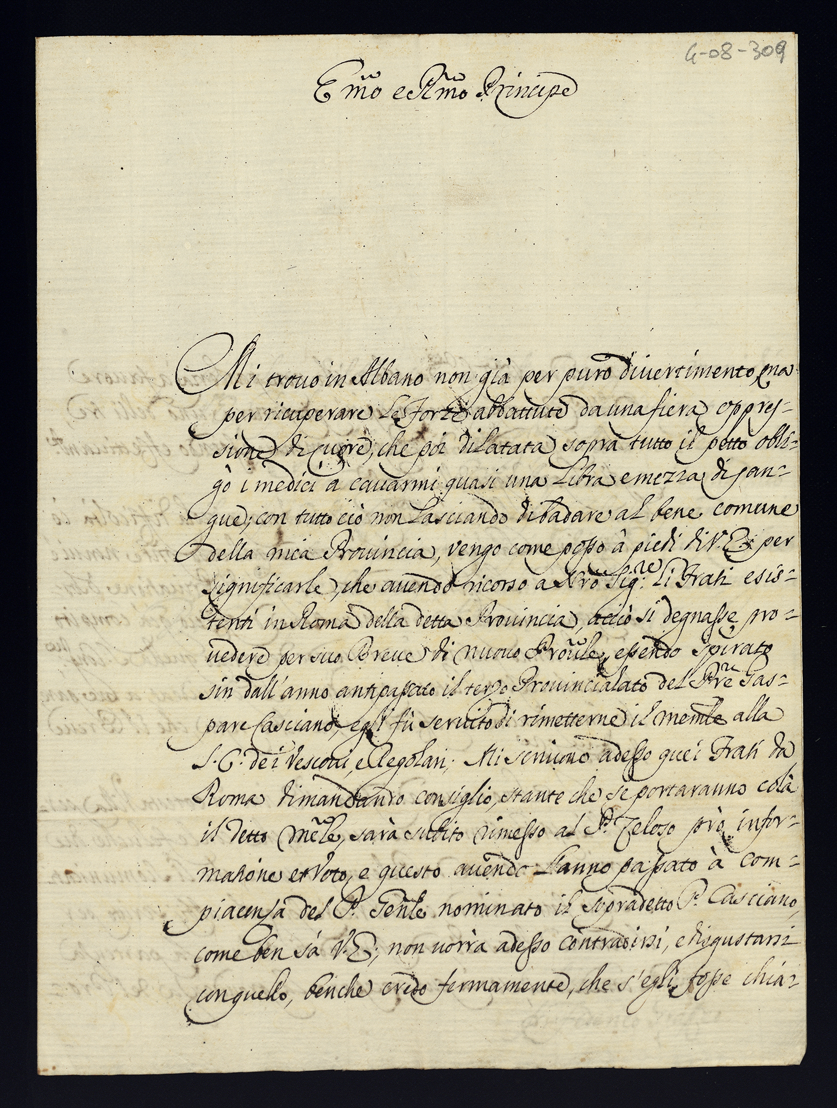 4-08-309
Emo e Rmo Principe
Mi trovo in Albano non già per puro divertimento, ma
per ricuperare le forze abbattute da una fiera oppres-
sione di cuore, che poi dilatata sopra tutto il petto obli-
gò i medici à cavarmi quasi una libra e mezza di san-
gue; con tutto ciò non lasciando di badare al bene comune
della mia Provincia, vengo come posso à piedi di V.E. per
significarle, che avendo ricorso a Nro Sigre li Frati esis-
tenti in Roma della detta Provincia, acciò si degnasse pro-
vedere per suo Breve di nuovo Provle, essendo spirato
sin dall'anno antipassato il terzo Provincialato del Pre Gas-
pare Casciano, egli fù servito di rimetterne il memle alla
S. C. de i Vescovi, e Regolari. Mi scrivono adesso quei Frati da
Roma dimandando consiglio, stante che se portaranno colà
il detto mle, sarà subito rimesso al P. Zeloso prò infor-
matione et voto, e questo avendo l'anno passato à com-
piacenza del P. Genle nominato il sopradetto P. Casciano,
come ben sà V.E., non vorrà adesso contradirsi, e disgustarsi
con quello, benche credo fermamente, che s'egli fosse chia-